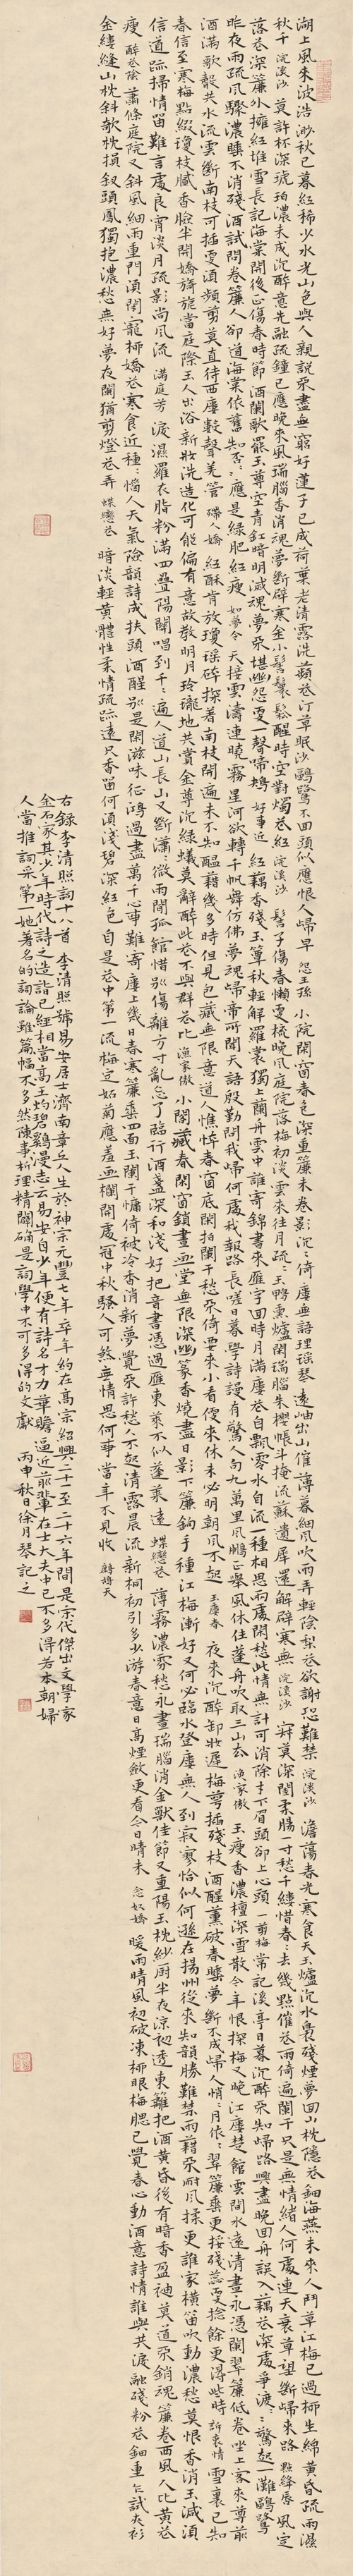 湖上風來波浩渺秋已暮紅稀少水光山色與人親說不盡無窮好蓮子已成荷葉老清露洗蘋花汀草眠沙鷗鷺不回頭似應恨人歸早 怨王孫 小院閑窗春色深重簾未卷影沉沉倚樓無語理瑤琴遠岫出山催薄暮細風吹雨弄輕陰梨花欲謝恐難禁 浣溪沙 澹蕩春光寒食天玉爐沉水裊殘煙夢回山枕隱花鈿海燕未來人鬥草江梅已過柳生綿黃昏疏雨濕
秋千 浣溪沙 莫許杯深琥珀濃未成沉醉意先融疏鐘已應晚來風瑞腦香消魂夢斷辟寒金小髻鬟鬆醒時空對燭花紅 浣溪沙 髻子傷春懶更梳晚風庭院落梅初淡雲來往月疏疏玉鴨熏爐閑瑞腦朱櫻帳斗掩流蘇遺犀還解辟寒無 浣溪沙 寂寞深閨柔腸一寸愁千縷惜春春去幾點催花雨倚遍闌干只是無情緒人何處連天衰草望斷歸來路 點絳唇 風定
落花深簾外擁紅堆雪長記海棠開後正傷春時節酒闌歌罷玉尊空青缸暗明滅魂夢不堪幽怨更一聲啼鴂 好事近 紅藕香殘玉簟秋輕解羅裳獨上蘭舟雲中誰寄錦書來雁字回時月滿樓花自飄零水自流一種相思兩處閑愁此情無計可消除才下眉頭卻上心頭 一剪梅 常記溪亭日暮沉醉不知歸路興盡晚回舟誤入藕花深處爭渡爭渡驚起一灘鷗鷺
昨夜雨疏風驟濃睡不消殘酒試問卷簾人卻道海棠依舊知否知否應是綠肥紅瘦 如夢令 天接雲濤連曉霧星河欲轉千帆舞仿佛夢魂歸帝所聞天語殷勤問我歸何處我報路長嗟日暮學詩謾有驚人句九萬里風鵬正舉風休住蓬舟吹取三山去 漁家傲 玉瘦香濃檀深雪散今年恨探梅又晚江樓楚館雲閑水遠清晝永憑闌翠簾低卷坐上客來尊前
酒滿歌聲共水流雲斷南枝可插更須頻剪莫直待西樓數聲羌管 殢人嬌 紅酥肯放瓊瑤碎探著南枝開遍未不知醞藉幾多時但見包藏無限意道人憔悴春窗底閑拍闌干愁不倚要來小看便來休未必明朝風不起 玉樓春 夜來沉醉卸妝遲梅萼插殘枝酒醒熏破春睡夢斷不成歸人悄悄月依依翠簾垂更挼殘蕊更捻餘更得些時 訴衷情 雪裏已知
春信至寒梅點綴瓊枝膩香臉半開嬌旖旎當庭際玉人出浴新妝洗造化可能偏有意故教明月玲瓏地共賞金尊沉綠蟻莫辭醉此花不與群花比 漁家傲 小閣藏春閑窗鎖晝畫堂無限深幽篆香燒盡日影下簾鉤手種江梅漸好又何必臨水登樓無人到寂寥恰似何遜在揚州從來知韻勝難禁雨藉不耐風揉更誰家橫笛吹動濃愁莫恨香消玉減須
信道跡掃情留難言處良宵淡月疏影尚風流 滿庭芳 淚濕羅衣脂粉滿四疊陽關唱到千千遍人道山長山又斷瀟瀟微雨聞孤館惜別傷離方寸亂忘了臨行酒盞深和淺好把音書憑過雁東萊不似蓬萊遠 蝶戀花 薄霧濃雰愁永晝瑞腦消金獸佳節又重陽玉枕紗廚半夜涼初透東籬把酒黃昏後有暗香盈袖莫道不銷魂簾卷西風人比黃花
瘦 醉花陰 蕭條庭院又斜風細雨重門須閉寵柳嬌花寒食近種種惱人天氣險韻詩成扶頭酒醒別是閑滋味征鴻過盡萬千心事難寄樓上幾日春寒簾垂四面玉闌干慵倚被冷香消新夢覺不許愁人不起清露晨流新桐初引多少游春意日高煙斂更看今日晴未 念奴嬌 暖雨晴風初破凍柳眼梅腮已覺春心動酒意詩情誰與共淚融殘粉花鈿重乍試夾衫
金縷縫山枕斜欹枕損釵頭鳳獨抱濃愁無好夢夜闌猶剪燈花弄 蝶戀花 暗淡輕黃體性柔情疏跡遠只香留何須淺碧深紅色自是花中第一流梅定妒菊應羞畫欄開處冠中秋騷人可煞無情思何事當年不見收 鷓鴣天
右錄李清照詞十八首 李清照號易安居士濟南章丘人生於神宗元豐七年卒年約在高宗紹興二十一至二十六年間是宋代傑出文學家
金石家其少年時代詩之造詣已經相當高王灼碧雞漫志云易安自少年便有詩名才力華贍逼近前輩在士大夫中已不多得若本朝婦
人當推詞采第一她著名的詞論雖篇幅不多然陳事析理精闢確是詞學中不可多得的文獻 丙申秋日徐月琴記之